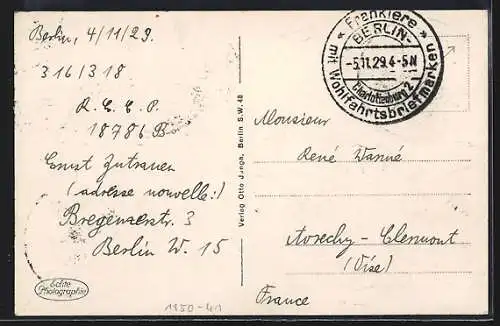 Berlin, 4/11/29.
316/318
R.E.C.P.
18786 B
Ernst Zutrauen
(adresse nouvelle:)
Bregenzerstr. 3
Berlin W. 15
Echte
Photographie
1950-41
Verlag Otto Junga, Berlin S.W. 48
« Frankiere »
mit Wohlfahrtsbriefmarken
BERLIN-
-5.11.29.4-5N
Charlottenburg 2
Monsieur
René
Clermont
(Oise)
France